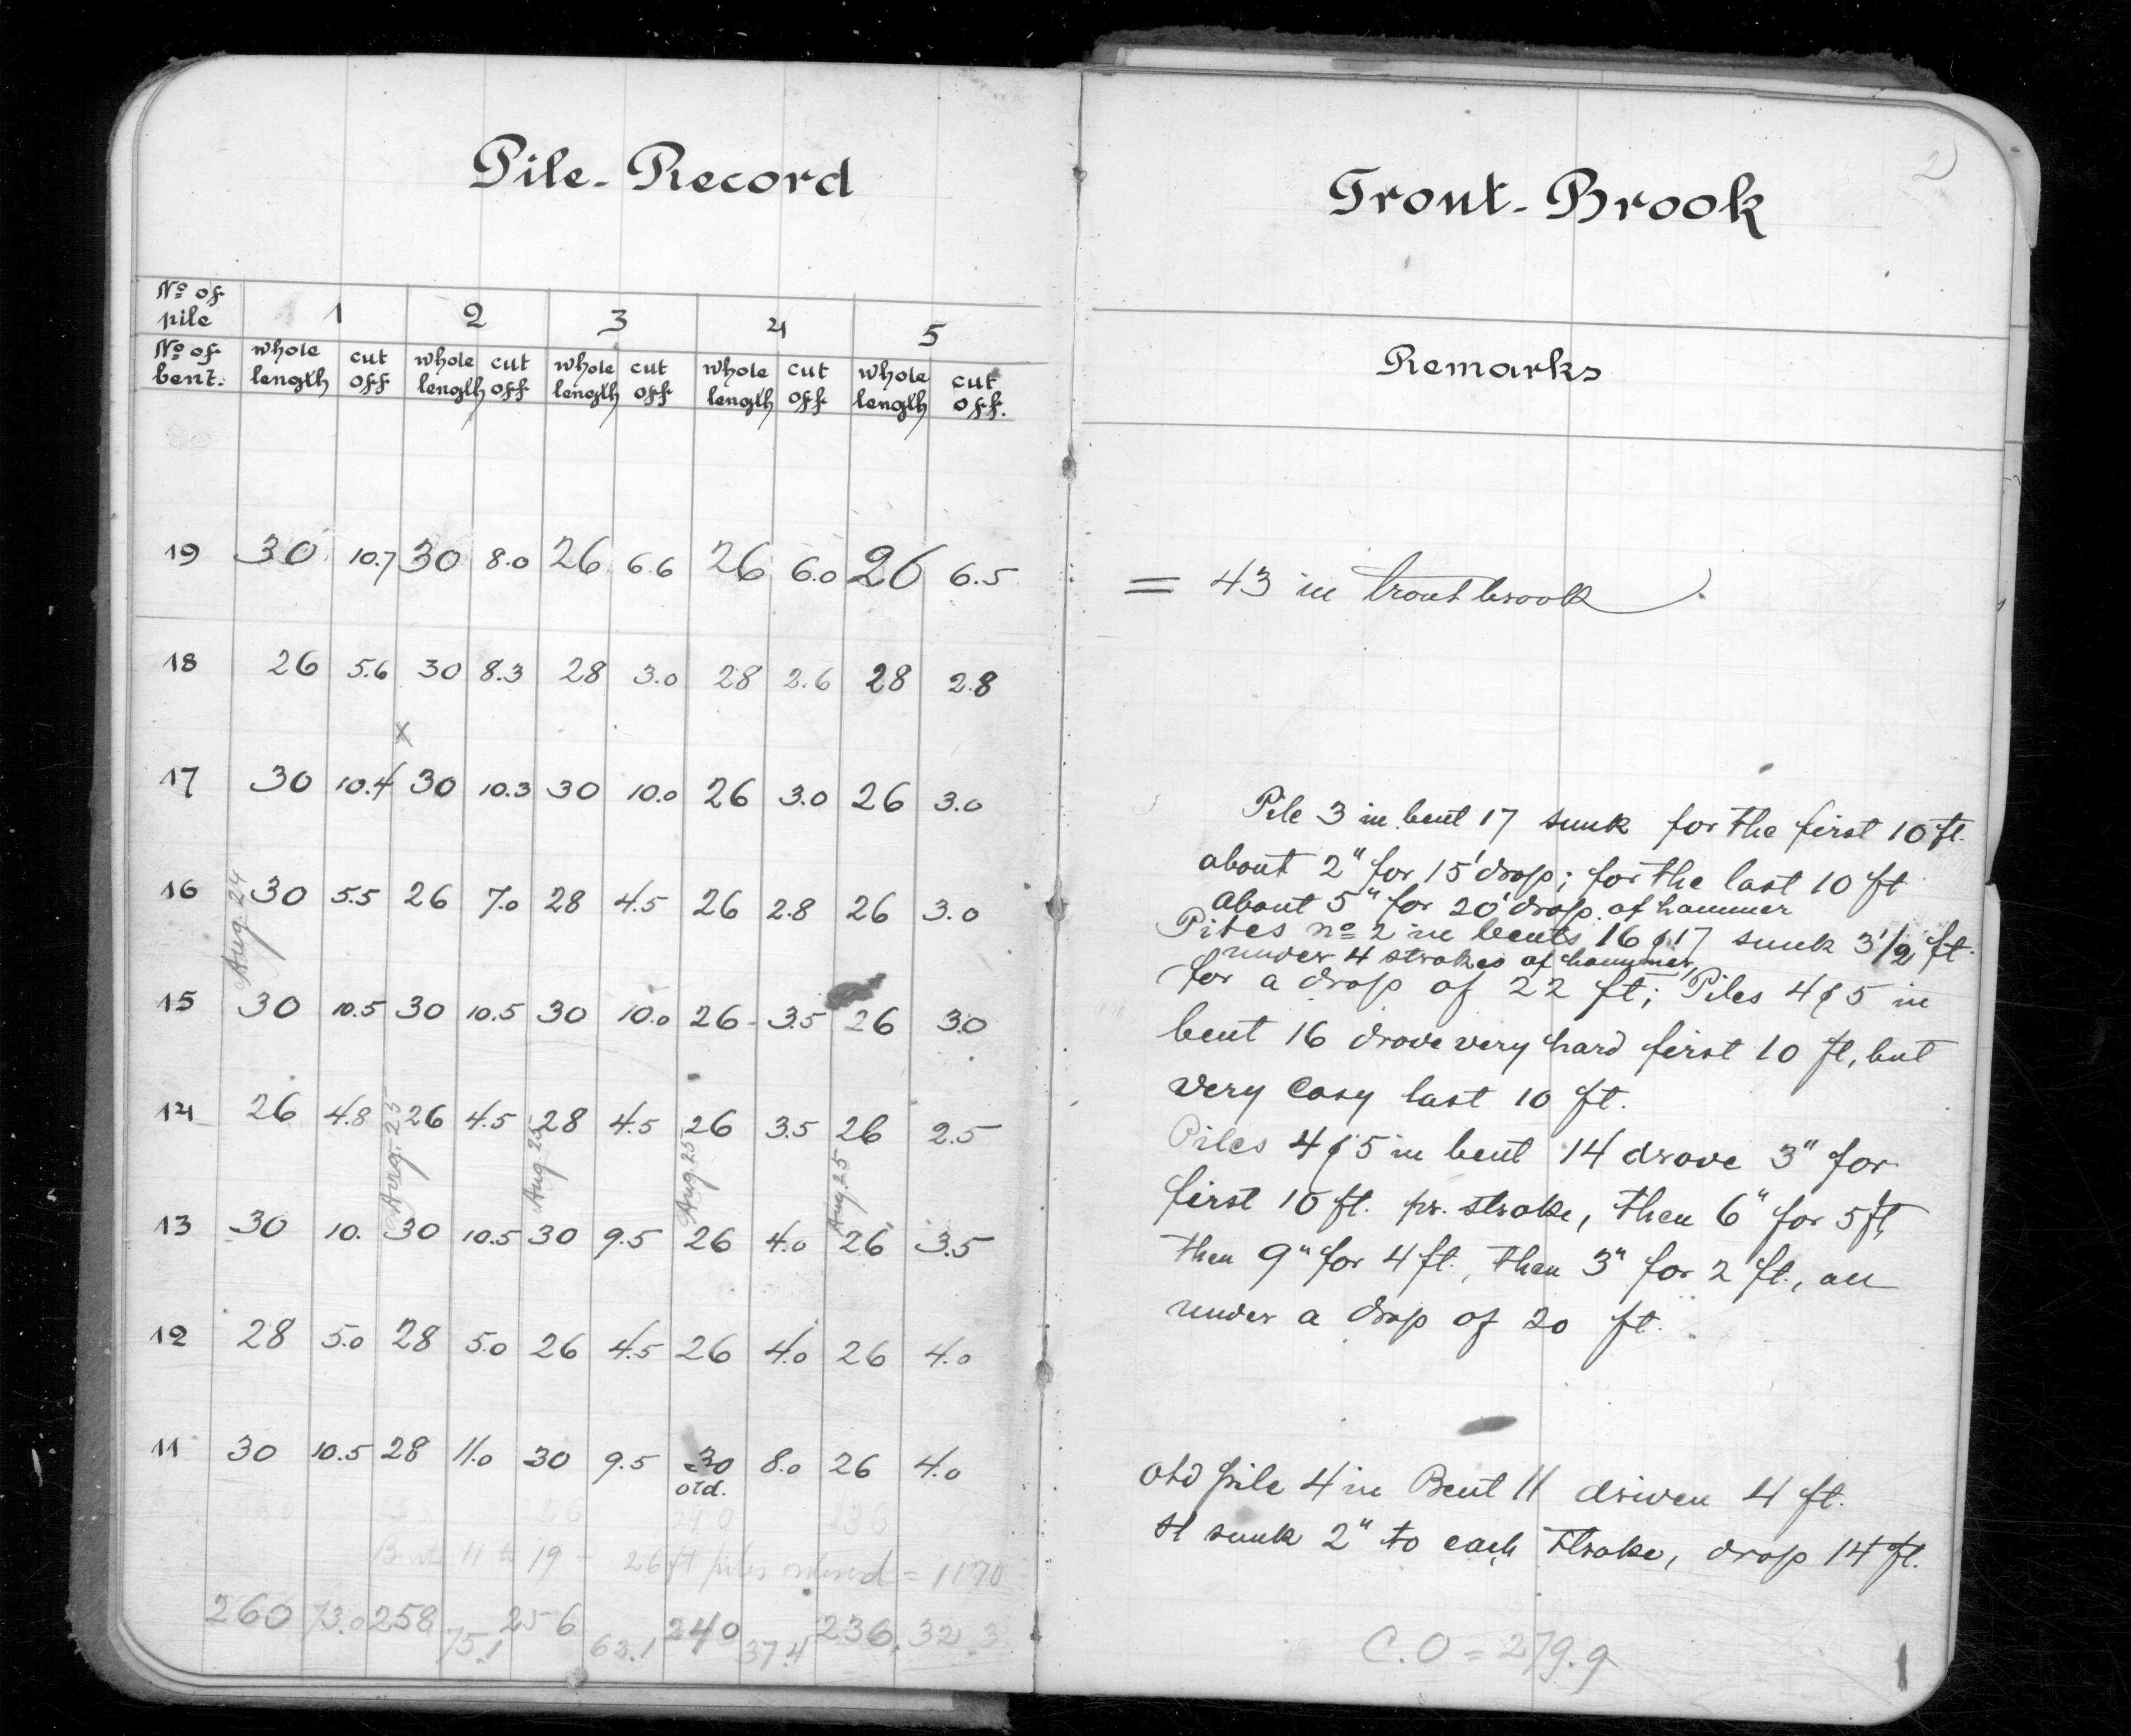 Pile-Record
No of pile 1 2 3 4 5
No of bent. whole length cut off whole length cut off whole length cut off whole length cut off whole length cut off.
20
19 30 10.7 30 8.0 26 6.6 26 6.0 26 6.5
18 26 5.6 30 8.3 28 3.0 28 2.6 28 2.8
x
17 30 10.4 30 10.3 30 10.0 26 3.0 26 3.0
16 30 5.5 26 7.0 28 4.5 26 2.8 26 3.0
Aug. 24
15 30 10.5 30 10.5 30 10.0 26 3.5 26 3.0
14 26 4.8 26 4.5 28 4.5 26 3.5 26 2.5
Aug. 25 Aug. 25 Aug. 25 Aug. 25
13 30 10. 30 10.5 30 9.5 26 4.0 26 3.5
12 28 5.0 28 5.0 26 4.5 26 4.0 26 4.0
11 30 10.5 28 11.0 30 9.5 30 8.0 26 4.0
old.
240 236
Bents 11 to 19 - 26 ft piles ordered = 1170
260 73.0 258 75.1 256 62.1 240 37.4 236. 32.3
2)
Trout-Brook
Remarks
= 43 in trout brook
Pile 3 in bent 17 sunk for the first 10 ft.
about 2" for 15' drop; for the last 10 ft
about 5" for 20' drop of hammer
Piles no 2 in bents 16 & 17 sunk 3 1/2 ft.
under 4 strokes of hammer,
for a drop of 22 ft; Piles 4 & 5 in
bent 16 drove very hard first 10 ft, but
very easy last 10 ft.
Piles 4 & 5 in bent 14 drove 3" for
first 10 ft. pr. stroke, then 6" for 5 ft,
then 9" for 4 ft., then 3" for 2 ft., all
under a drop of 20 ft.
Old pile 4 in Bent 11 driven 4 ft.
It sunk 2" to each stroke, drop 14 ft.
C.O = 279.9
1